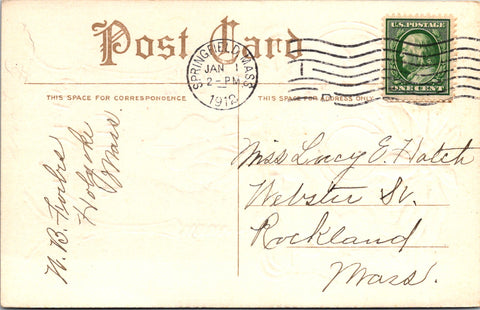 Post Card
SPRINGFIELD, MASS.
JAN 1
2 - PM
1912
U.S. POSTAGE
ONE CENT
THIS SPACE FOR CORRESPONDENCE
THIS SPACE FOR ADDRESS ONLY
W. B. Forbes
Holyoke
Mass.
Miss Lucy E. Hatch
Webster St.
Rockland
Mass.